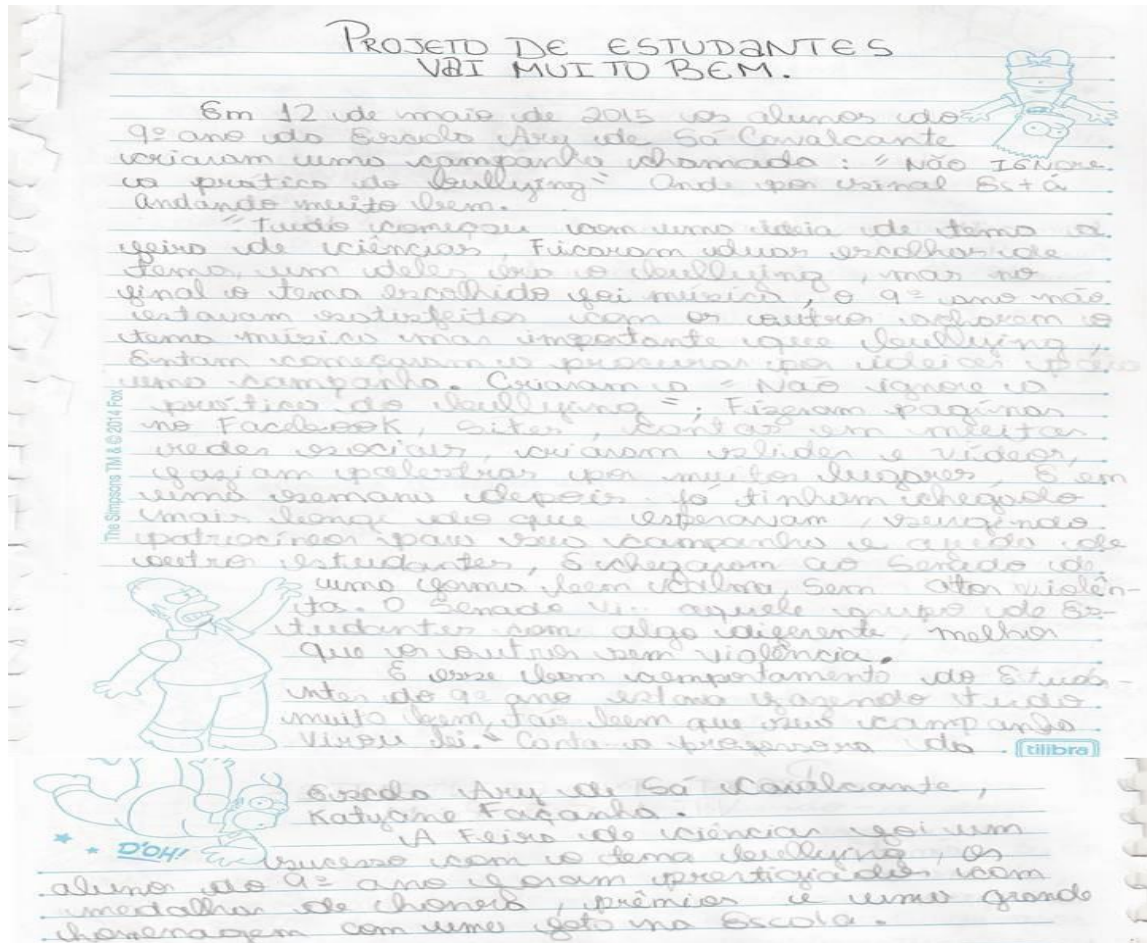 PROJETO DE ESTUDANTES
VAI MUITO BEM.
Em 12 de maio de 2015 os alunos do
9º ano da Escola Ary de Sá Cavalcante
criaram uma campanha chamada: "NÃO IGNORE
a prática do bullying" Onde por sinal Está
andando muito bem.
"Tudo começou com uma ideia de tema a
feira de ciências, Ficaram duas escolhas de
tema, um deles era o bullying, mas no
final o tema escolhido foi música, o 9º ano não
estavam satisfeitos com os outros acharem o
tema música mas importante que bullying,
Entam começaram a procurar por ideias para
uma campanha. Criaram a "Não ignore a
prática do bullying"; Fizeram paginas
no Facebook, Sites, contas em muitas
redes sociais, criaram slides e vídeos,
faziam palestras por muitos lugares, E em
uma semana depois já tinham chegado
mais longe do que esperavam, surgindo
patrocineos para sua campanha e ajuda de
outros estudantes, E chegaram ao Senado de
uma forma bem calma, Sem atos violên-
ta. O Senado viu aquele grupo de Es-
tudantes com algo diferente, melhor
que os outros sem violência.
E esse bom comportamento do Estuda-
ntes do 9º ano estava fazendo tudo
muito bem, tão bem que sua campanha
virou lei." Conta a professora da
tilibra
The Simpsons TM & © 2014 Fox
Escola Ary de Sá Cavalcante,
Katyane Façanha.
A Feira de ciências foi um
D'OH!
sucesso com o tema bullying, os
aluno do 9º ano foram prestigiados com
medalhas de honera, prêmios e uma grande
homenagem com uma foto na Escola.